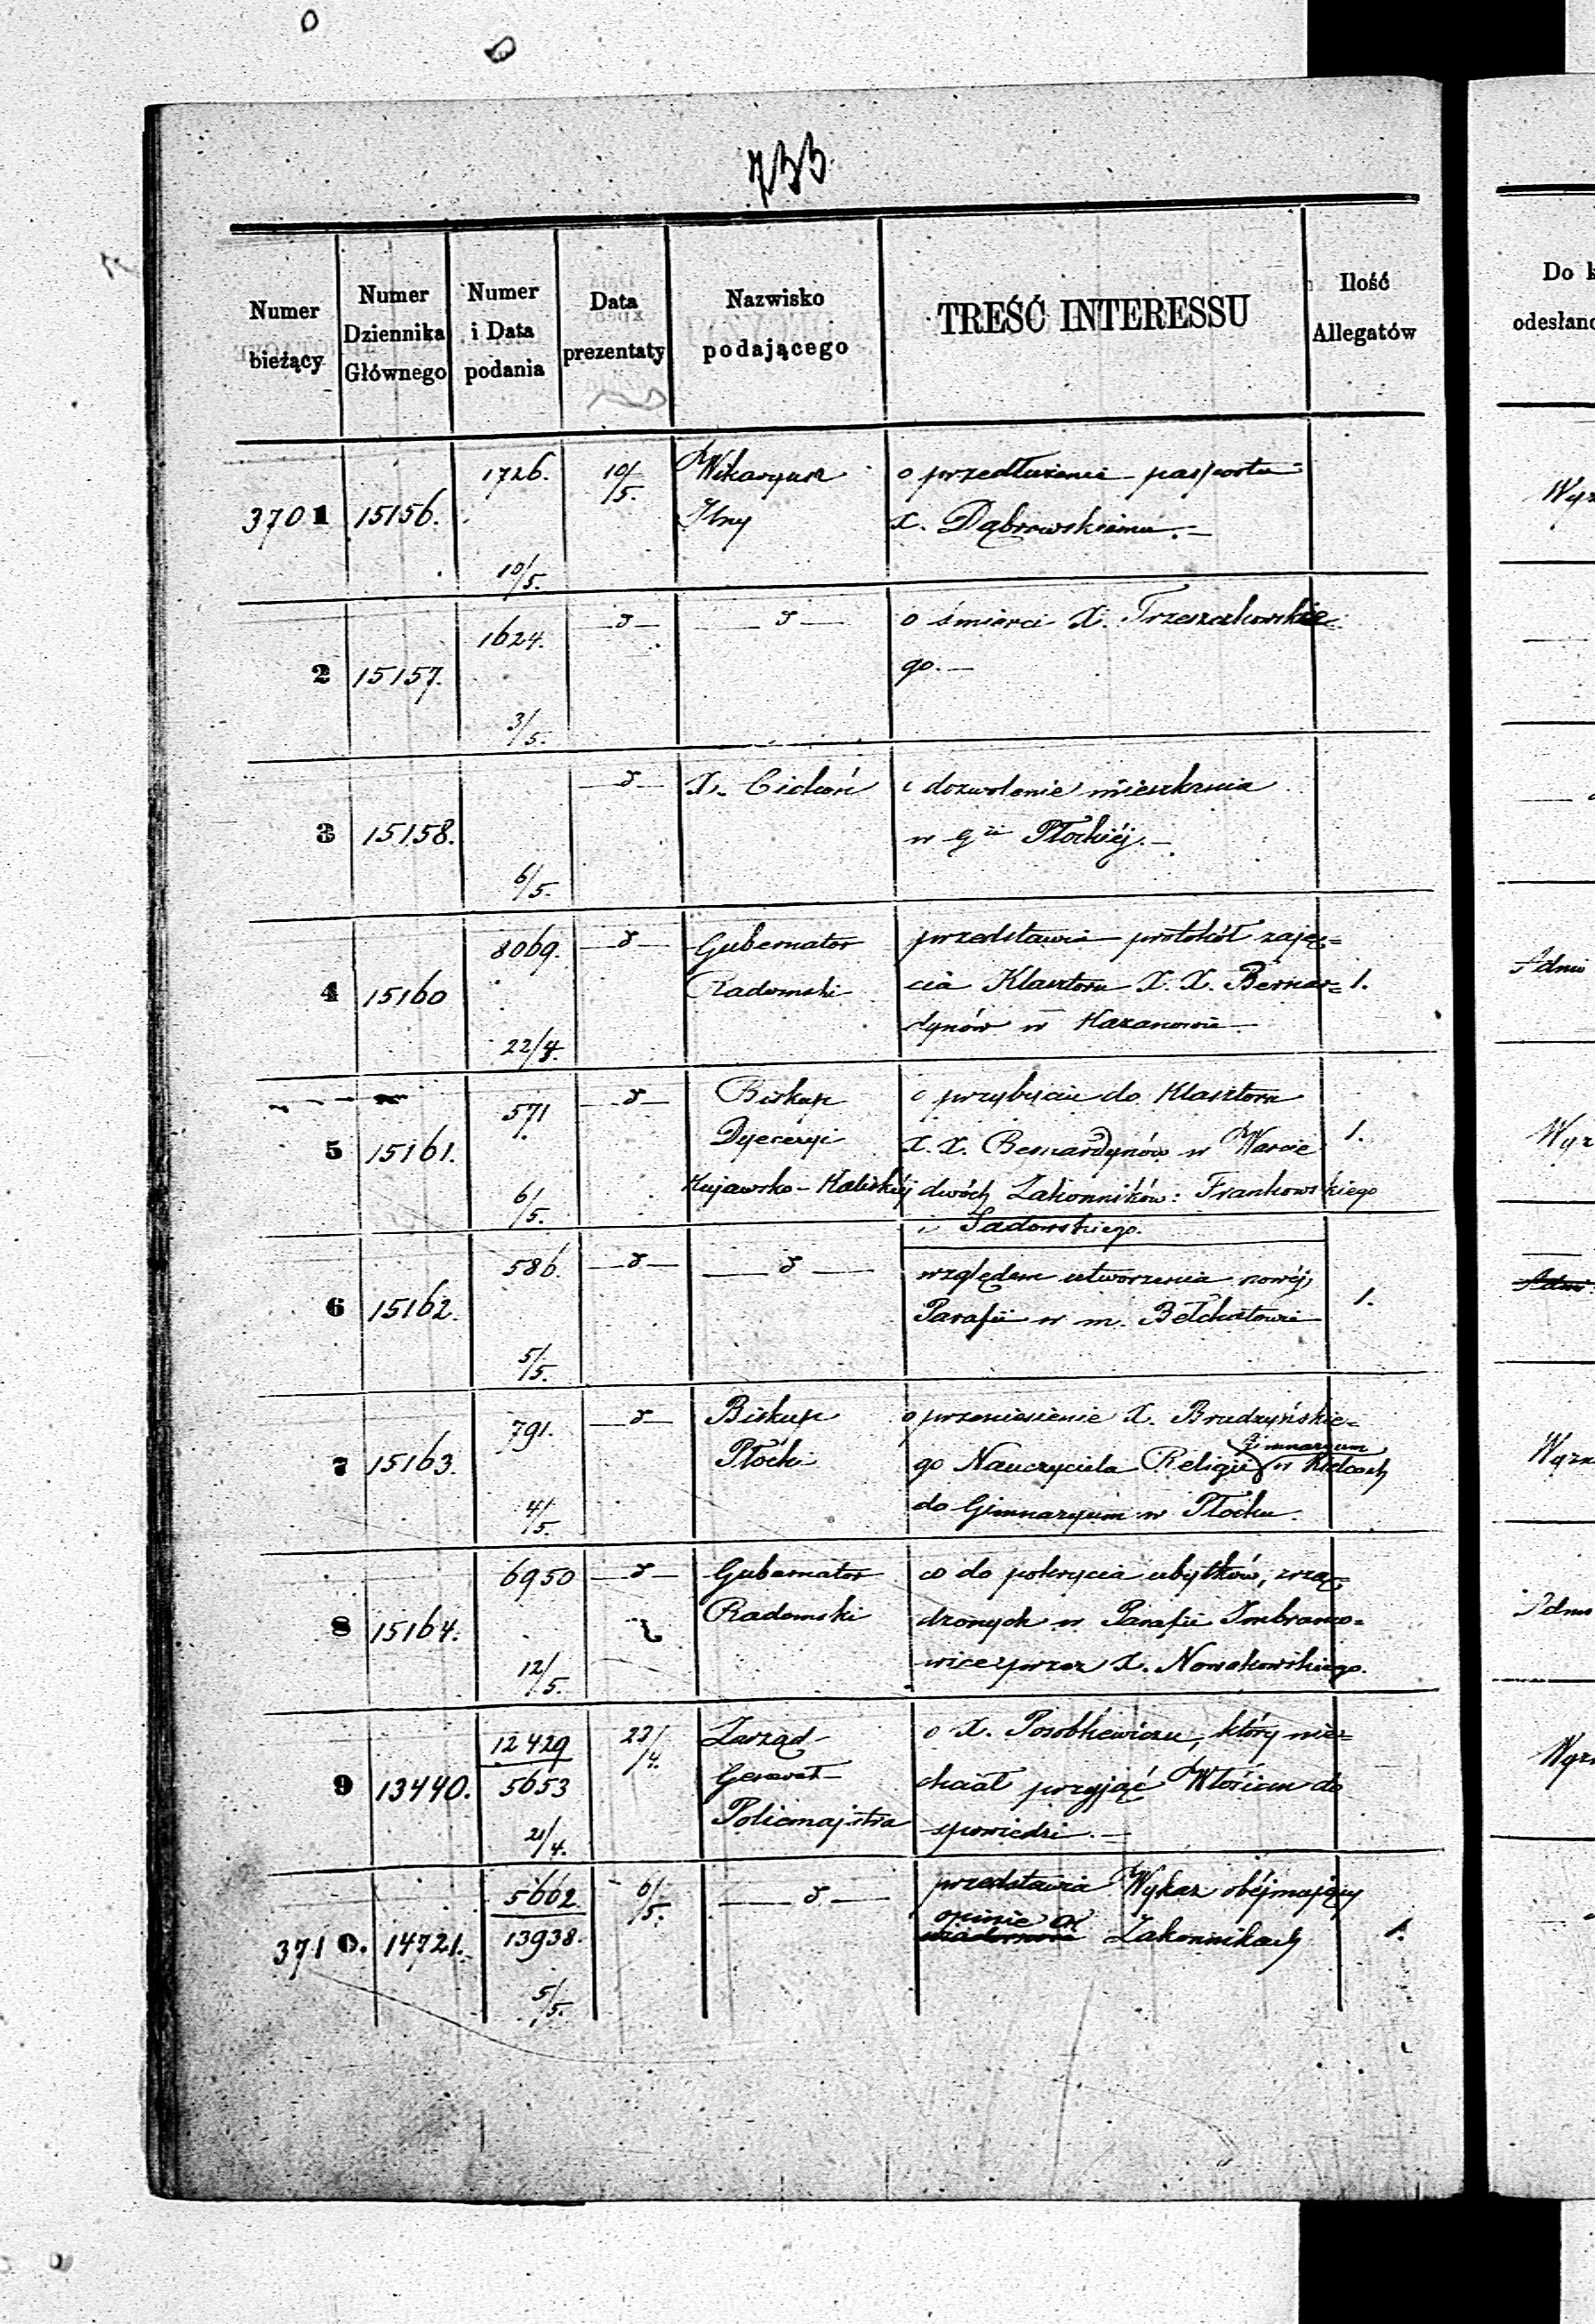 733.
Numer bieżący
Numer Dziennika Głównego
Numer i Data podania
Data prezentaty
Nazwisko podającego
TREŚĆ INTERESSU
Ilość Allegatów
Do
odesłano
3701 15156. 1726. 10/5. 10/5. Wikaryusz
o przedłużenie paszportu
X. Dąbrowskiemu.—
2 15157. 1624. 3/5. —d— —d—
o śmierci X. Trzeszczkowskie
go.—
3 15158. 6/5. —d— X. Cichoń
o dozwolenie mieszkania
w gii Płockiéj.—
4 15160 8069. 22/4. —d— Gubernator
Radomski
przedstawia protokół zaję=
cia Klasztoru X. X. Bernar= 1.
dynów w Kazanowie
5 15161. 571. 6/5. —d— Biskup
Dyecezyi
Kujawsko-Kaliskiéj
o przybyciu do Klasztoru
X. X. Bernardynów w Warcie 1.
dwóch Zakonników: Frankowskiego
i Sadowskiego.
6 15162. 586. 5/5. —d— —d—
względem utworzenia nowéj
Parafii w m. Bełchatowie 1.
7 15163. 791. 4/5. —d— Biskup
Płocki
o przeniesienie X. Brudzyńskie=
go Nauczyciela Religii Gimnazyum w Kielcach
do Gimnazyum w Płocku.
8 15164. 6950 12/5. —d— Gubernator
Radomski
co do pokrycia ubytków, zrzą=
dzonych w Parafii Imbramo=
wice przez X. Nowakowskiego.
9 13440. 12429 5653 21/4. 23/4. Zarząd
Generał
Policmajstra
o X. Posobkiewiczu, który nie=
chciał przyjąć Włościan do
spowiedzi.—
3710. 14721. 5662 13938. 5/5. 6/5. —d—
przedstawia Wykaz obéjmujący
opinie o Zakonnikach 1.